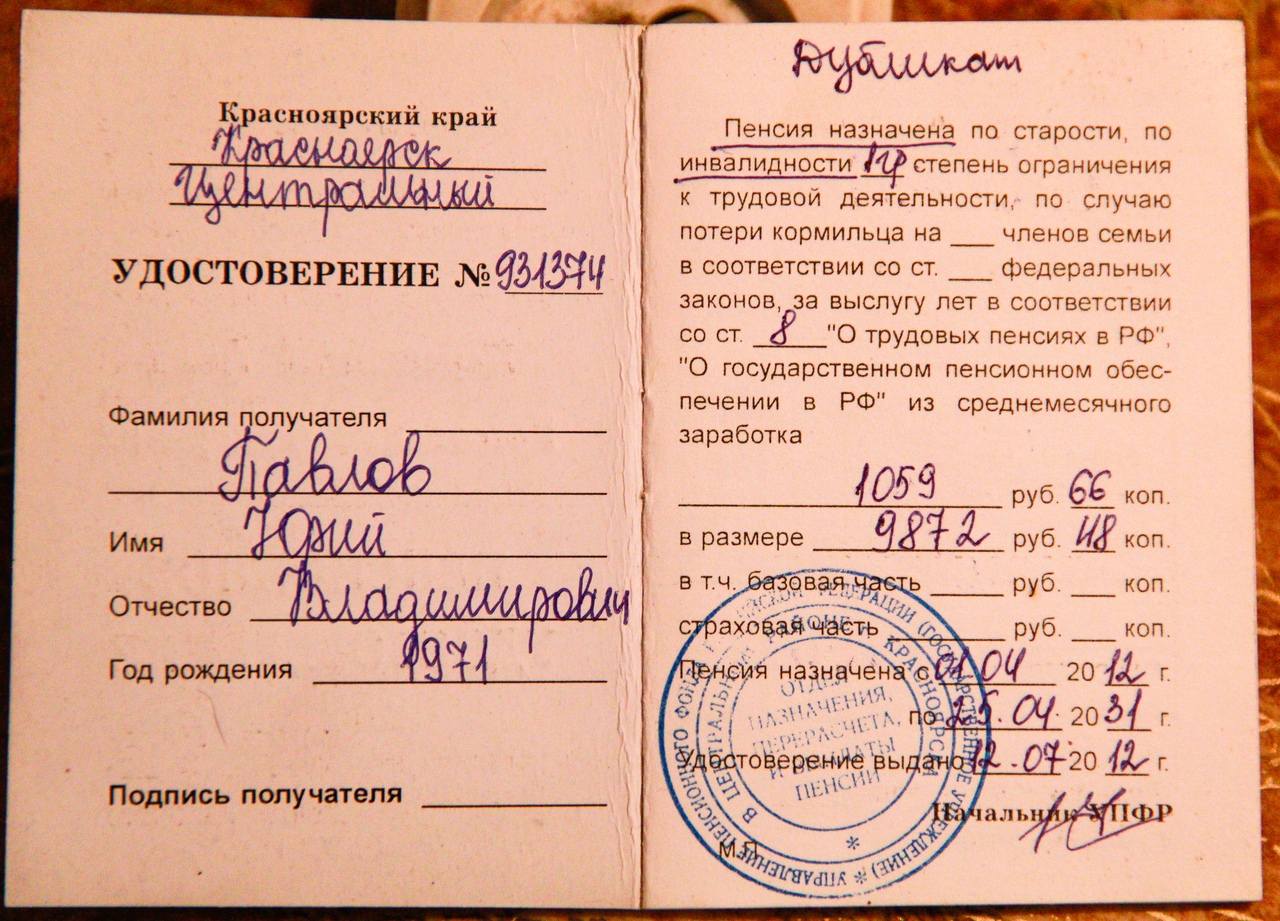 Красноярский край
Красноярск
Центральный
УДОСТОВЕРЕНИЕ № 931374
Фамилия получателя
Павлов
Имя Юрий
Отчество Владимирович
Год рождения 1971
Подпись получателя
Дубликат
Пенсия назначена по старости, по
инвалидности 1гр степень ограничения
к трудовой деятельности, по случаю
потери кормильца на ___ членов семьи
в соответствии со ст. ___ федеральных
законов, за выслугу лет в соответствии
со ст. 8 "О трудовых пенсиях в РФ",
"О государственном пенсионном обес-
печении в РФ" из среднемесячного
заработка
1059 руб. 66 коп.
в размере 9872 руб. 48 коп.
в т.ч. базовая часть ____ руб. ___ коп.
страховая часть ____ руб. ___ коп.
Пенсия назначена с 01.04 2012 г.
по 25.04. 2031 г.
Удостоверение выдано 12.07 2012 г.
Начальник УПФР
М.П.
УПРАВЛЕНИЕ ПЕНСИОННОГО ФОНДА ФЕДЕРАЦИИ (ГОСУДАРСТВЕННОЕ УЧРЕЖДЕНИЕ) *
В ЦЕНТРАЛЬНОМ РАЙОНЕ г. КРАСНОЯРСКА
ОТДЕЛ
НАЗНАЧЕНИЯ,
ПЕРЕРАСЧЕТА,
И ВЫПЛАТЫ
ПЕНСИЙ
*